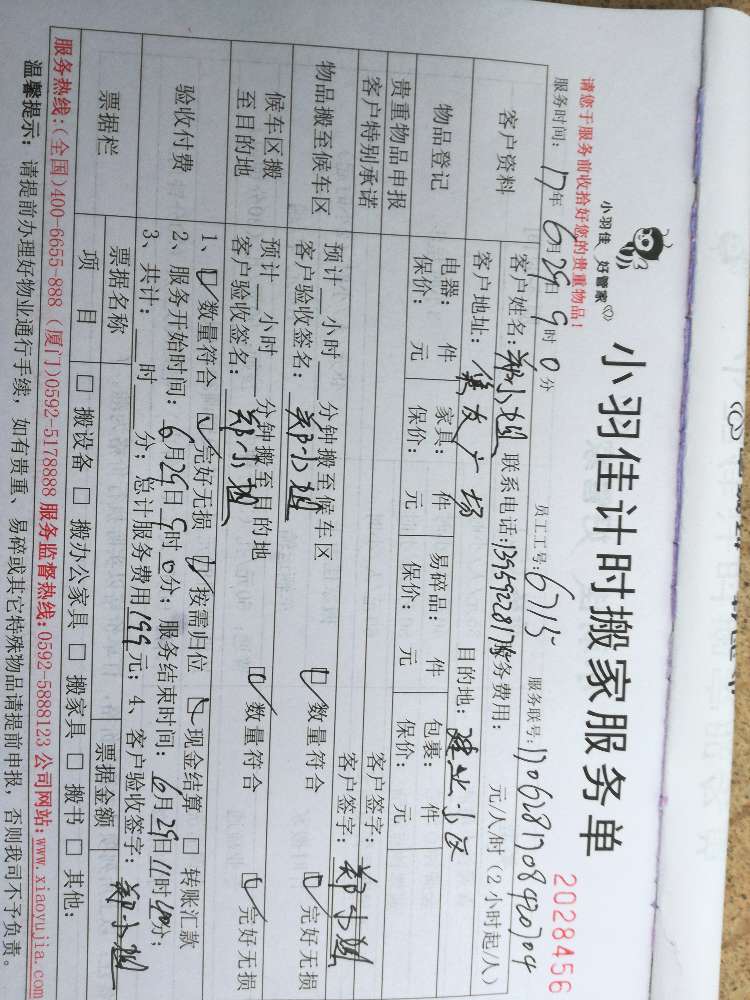 小羽佳 好管家
小羽佳计时搬家服务单
2028456
请您于服务前收拾好您的贵重物品！
服务时间：17年6月29日9时0分 员工工号：6715 服务联号：
客户资料
客户姓名：郑小姐 联系电话： 服务费用： 元/人/时（2小时起/人）
客户地址： 广场 目的地： 小区
物品登记
电器： 件 家具： 件 易碎品： 件 包裹： 件
保价： 元 保价： 元 保价： 元 保价： 元
贵重物品申报 客户签字：
客户特别承诺 客户签字：郑小姐
物品搬至候车区
预计__小时__分钟搬至候车区
客户验收签名：郑小姐 ☑数量符合 ☑完好无损
候车区搬至目的地
预计__小时__分钟搬至目的地
客户验收签名：郑小姐 ☑数量符合 ☑完好无损
验收付费
1、☑数量符合 ☑完好无损 ☑按需归位 ☑现金结算 □转账汇款
2、服务开始时间：6月29日9时0分；服务结束时间：6月29日11时40分；
3、共计：__时__分；总计服务费用199元；4、客户验收签字：郑小姐
票据栏
票据名称 票据金额
项目 □搬设备 □搬办公家具 □搬家具 □搬书 □其他：
服务热线：（全国）400-6655-888（厦门）0592-5178888 服务监督热线：0592-5888123 公司网站：www.xiaoyujia.com
温馨提示：请提前办理好物业通行手续，如有贵重、易碎或其它特殊物品请提前申报，否则我司不予负责。